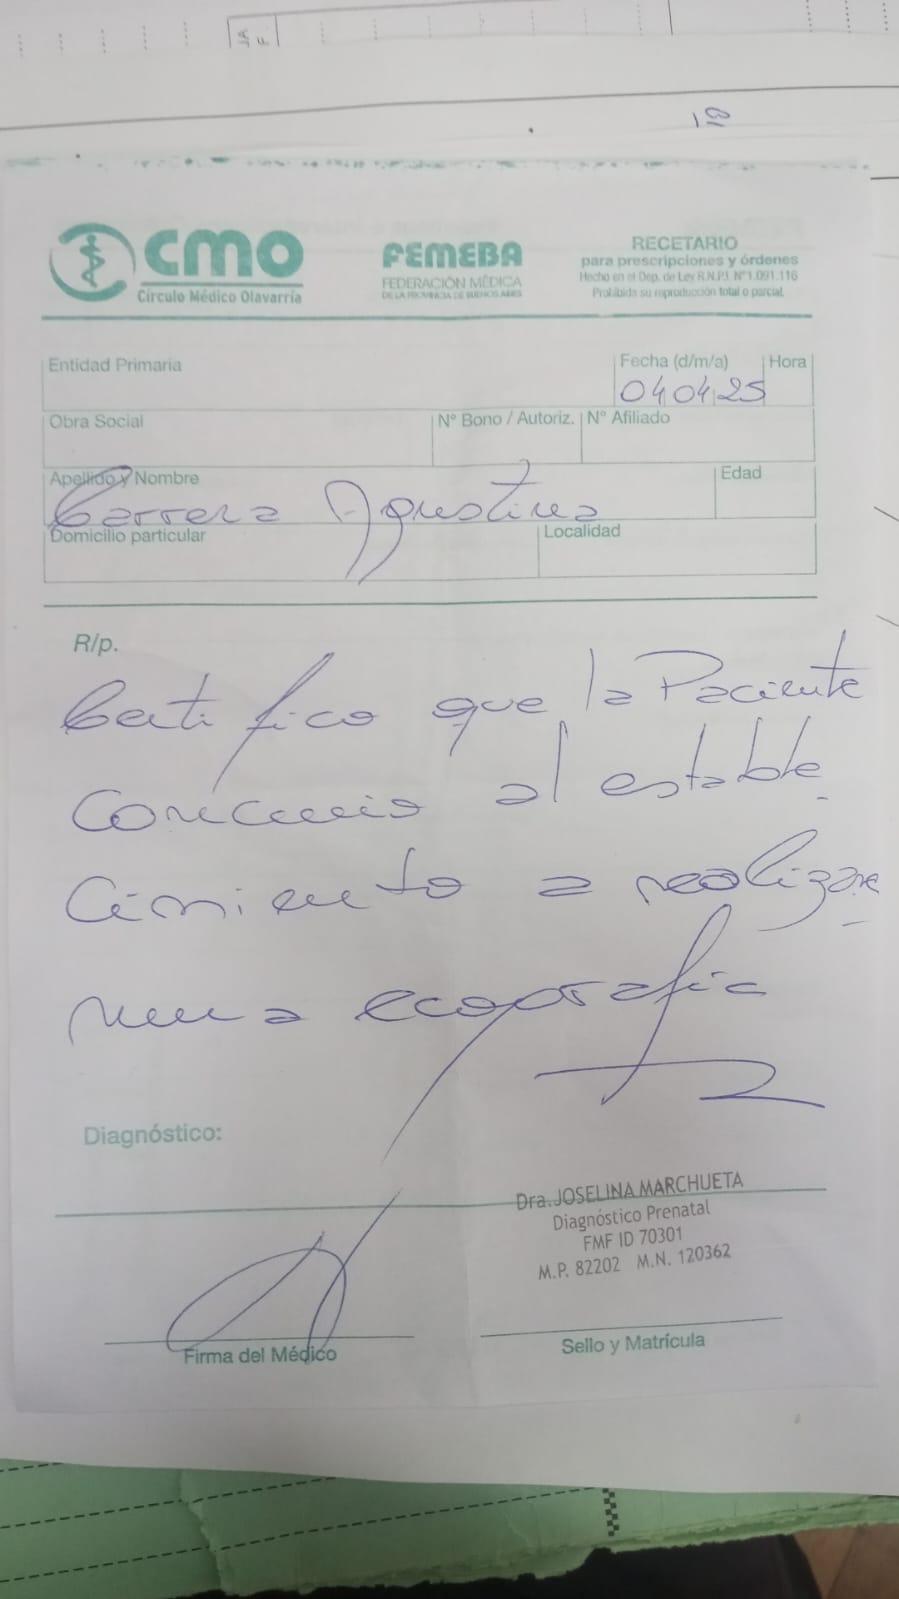 JA
F.
18
CMO
Círculo Médico Olavarría
FEMEBA
FEDERACIÓN MÉDICA
DE LA PROVINCIA DE BUENOS AIRES
RECETARIO
para prescripciones y órdenes
Hecho en el Dep. de Ley R.N.P.I. Nº1.091.116
Prohibida su reproducción total o parcial.
Entidad Primaria
Fecha (d/m/a)
Hora
04 04 25
Obra Social
Nº Bono / Autoriz.
Nº Afiliado
Apellido y Nombre
Edad
Carrera Agustina
Domicilio particular
Localidad
R/p.
Certifico que la Paciente
concurrio al estable
cimiento a realizarse
una ecografia
Diagnóstico:
Dra. JOSELINA MARCHUETA
Diagnóstico Prenatal
FMF ID 70301
M.P. 82202 M.N. 120362
Firma del Médico
Sello y Matrícula